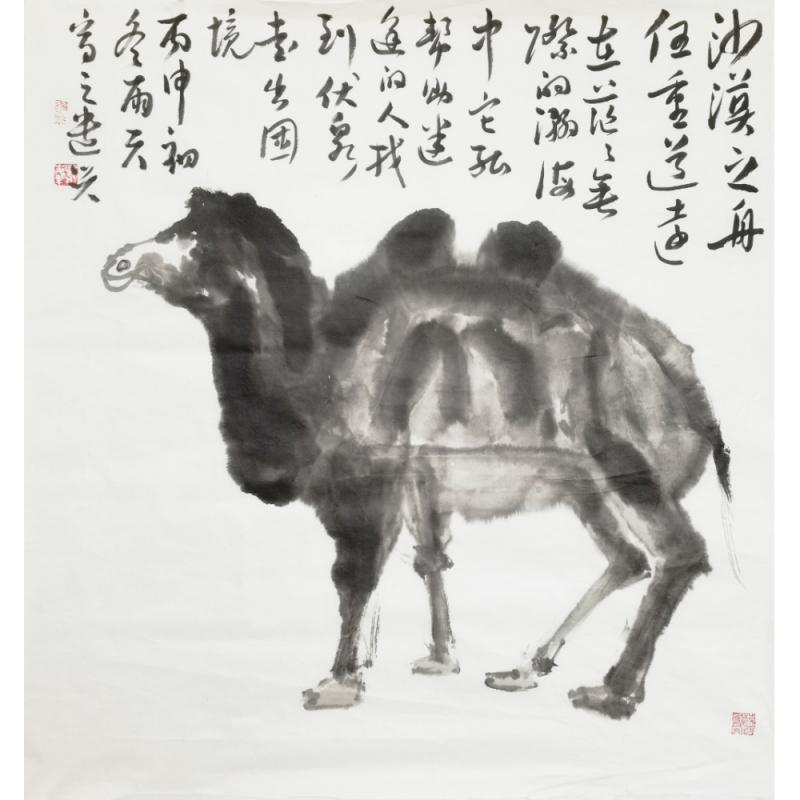 沙漠之舟
任重道遠
在茫々無
際的瀚海
中它能
幫助迷
途的人找
到伏泉
走出困
境
丙申初
冬雨天
寫之遣兴